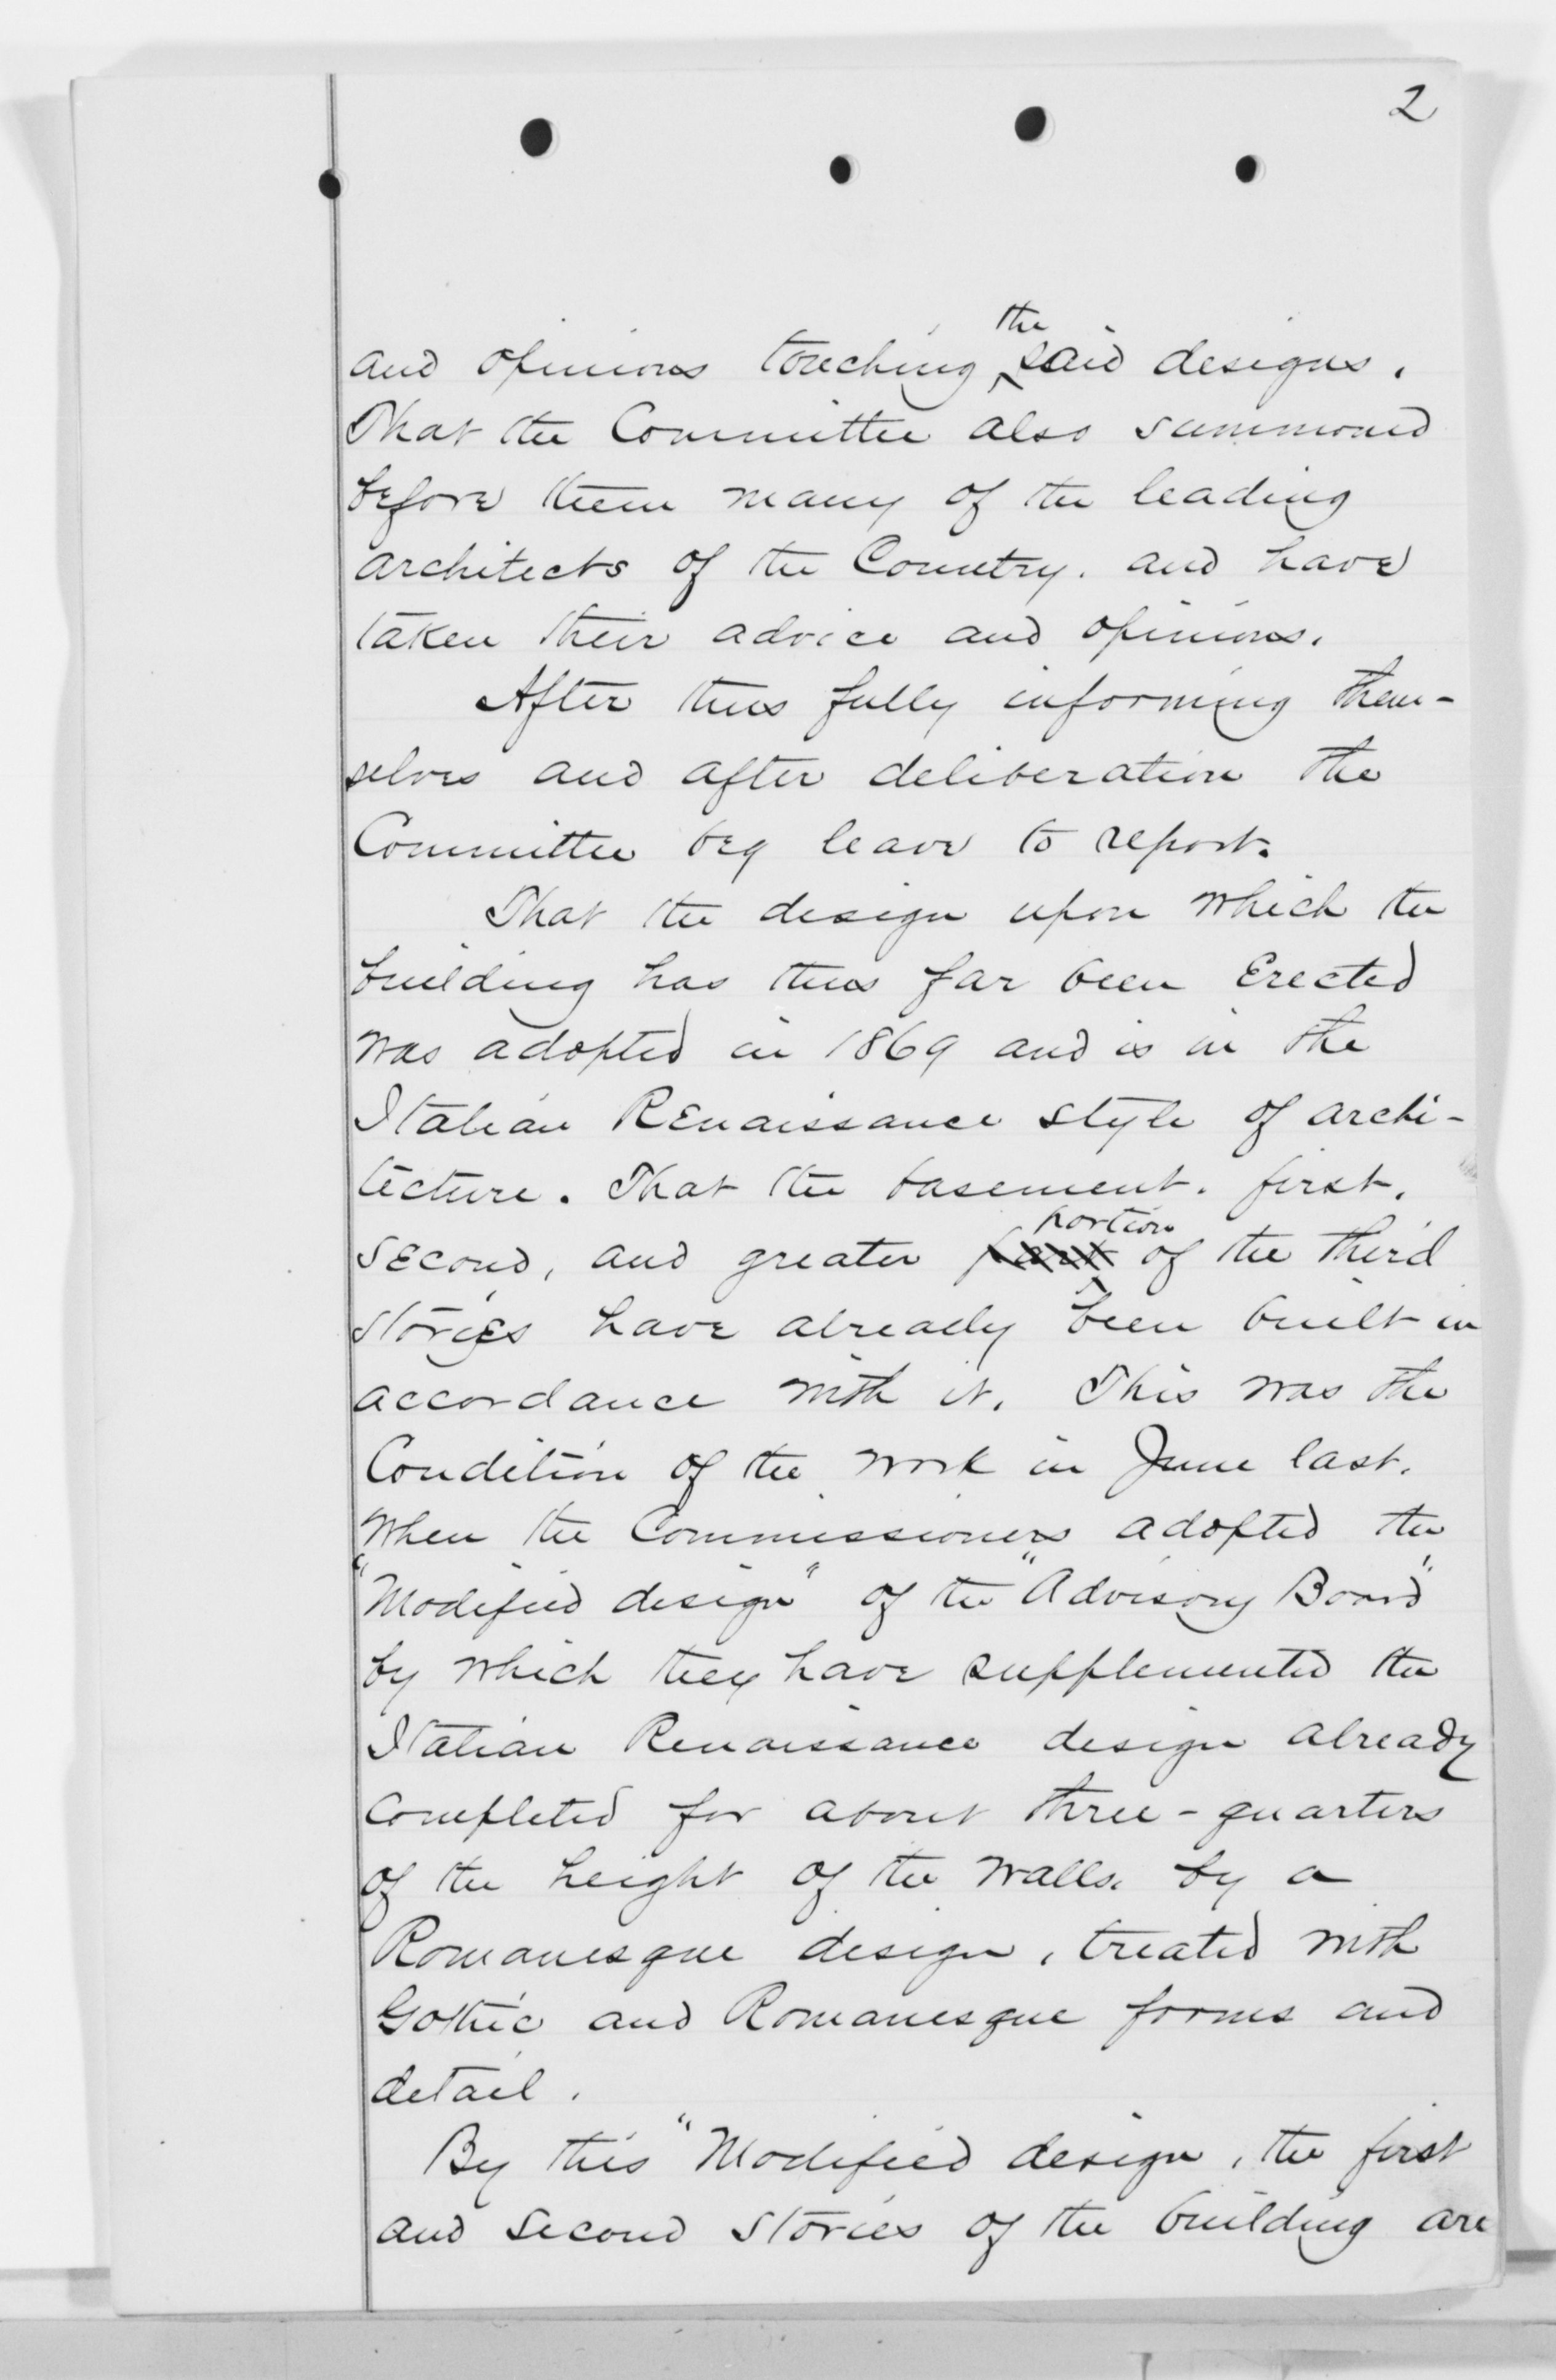 2
and opinions touching the said designs.
That the Committee also summoned
before them many of the leading
architects of the Country. and have
taken their advice and opinions.
After thus fully informing them-
selves and after deliberation the
Committee beg leave to report.
That the design upon which the
building has thus far been Erected
was adopted in 1869 and is in the
Italian Renaissance style of archi-
tecture. That the basement. first.
second, and greater part portion of the third
stories have already been built in
accordance with it. This was the
Condition of the work in June last.
When the Commissioners adopted the
"Modified design" of the "Advisory Board"
by which they have supplemented the
Italian Renaissance design already
completed for about three-quarters
of the height of the walls. by a
Romanesque design, treated with
Gothic and Romanesque forms and
detail.
By this "Modified design, the first
and second stories of the building are